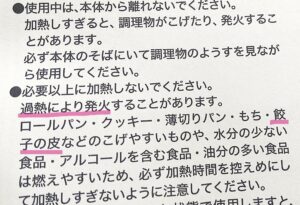 ●使用中は、本体から離れないでください。
加熱しすぎると、調理物がこげたり、発火するこ
とがあります。
必ず本体のそばにいて調理物のようすを見なが
ら使用してください。
●必要以上に加熱しないでください。
過熱により発火することがあります。
ロールパン・クッキー・薄切りパン・もち・餃
子の皮などのこげやすいものや、水分の少ない
食品・アルコールを含む食品・油分の多い食品
は燃えやすいため、必ず加熱時間を控えめにし
て加熱しすぎないように注意してください。
状態で使用しますと、